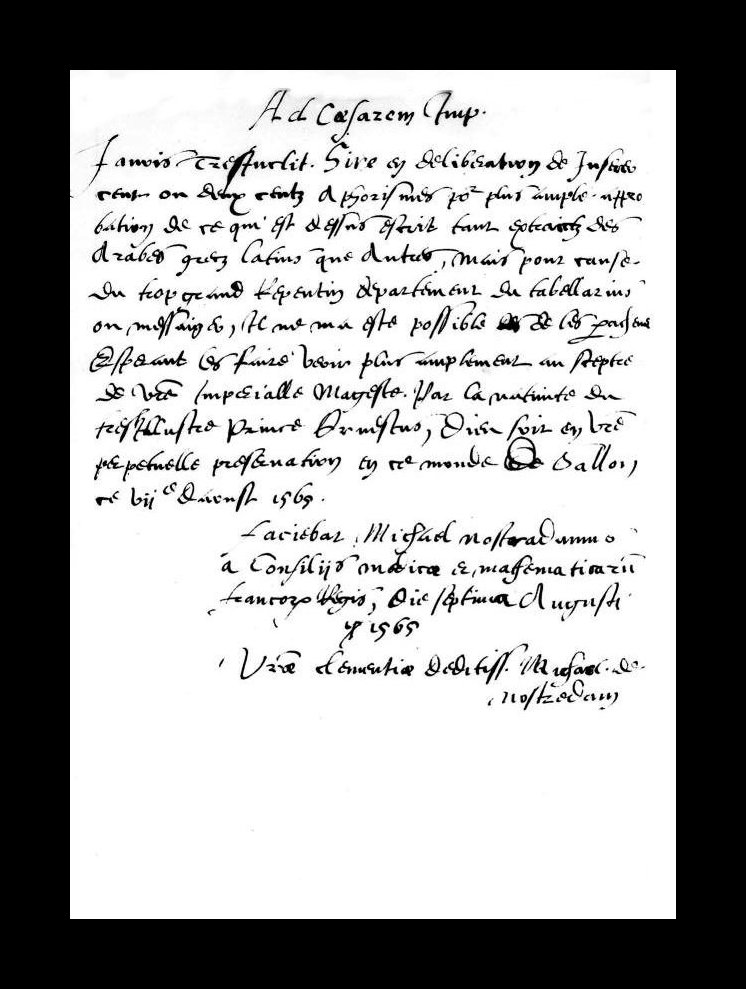 Ad Cæsarem Imp.
J'avois Tresinclit. Sire en deliberation de Inserer
cent ou deux centz Aphorismes por plus ample appro
bation de ce qui est dessus escrit tant extraictz des
Arabes grecz latins que Autres, Mais pour cause
du trop grand Repentin departement du tabellarius
ou messaiger, Il ne ma este possible de les parachever
Esperant les faire venir plus amplement au sceptre
de vre Imperialle Mageste. Par la nativite du
tresillustre Prince Ernestus, Dieu soit en vre
perpetuelle preservation en ce monde De Sallon,
ce vije d'aoust 1565.
Faciebat Michael nostradamus
a Consilijs medicæ et mathematicarū
francorꝝ Regis, Die septima Augusti
1565
Vræ clementiæ deditiss. Michael de
nostredam